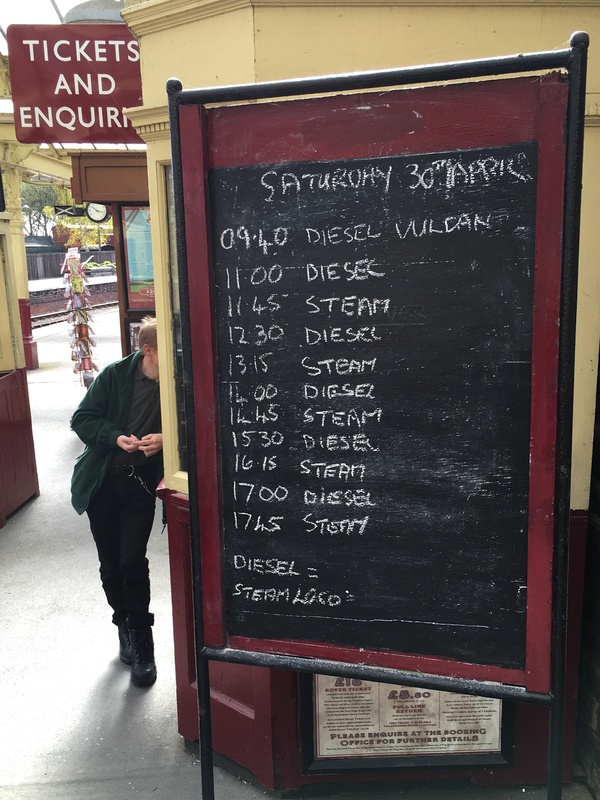 TICKETS
AND
SATURDAY 30TH APRIL
09.40 DIESEL VULCAN
11.00 DIESEL
11.45 STEAM
12.30 DIESEL
13.15 STEAM
14.00 DIESEL
14.45 STEAM
15.30 DIESEL
16.15 STEAM
17.00 DIESEL
17.45 STEAM
DIESEL =
STEAM LOCO =
ROVER TICKET
£8.50
FULL LINE
RETURN
PLEASE ENQUIRE AT THE BOOKING
OFFICE FOR FURTHER DETAILS